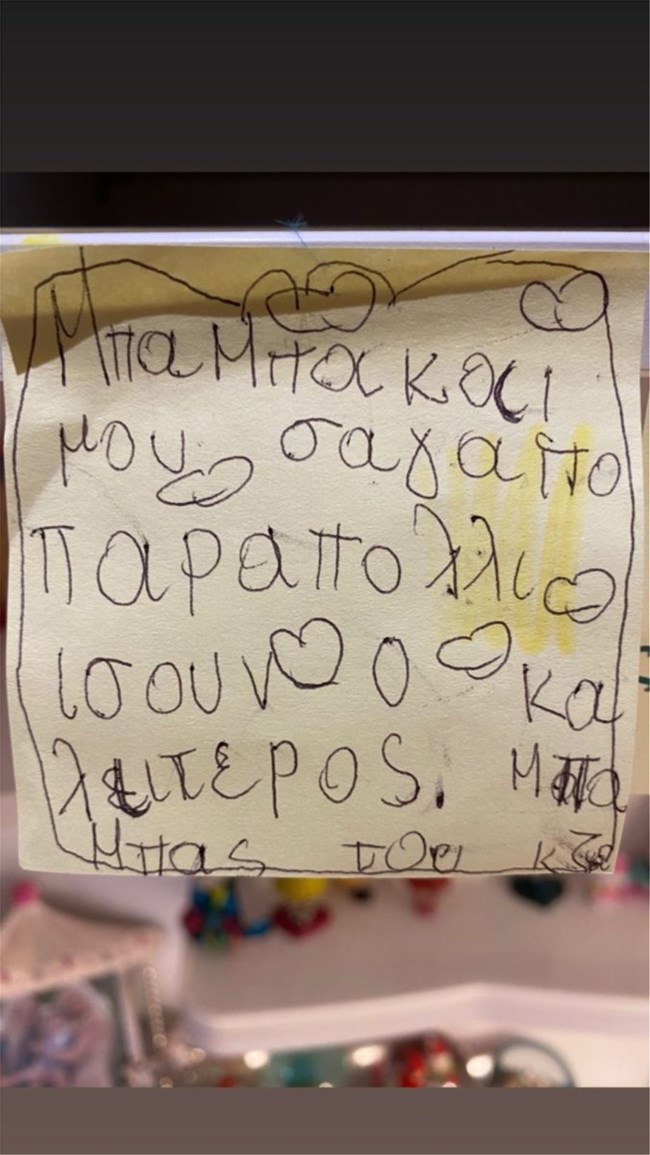 Μπαμπακαι
μου σαγαπο
παραπολλι
ισουν ο κα
λειτερος. μπα
μπας του